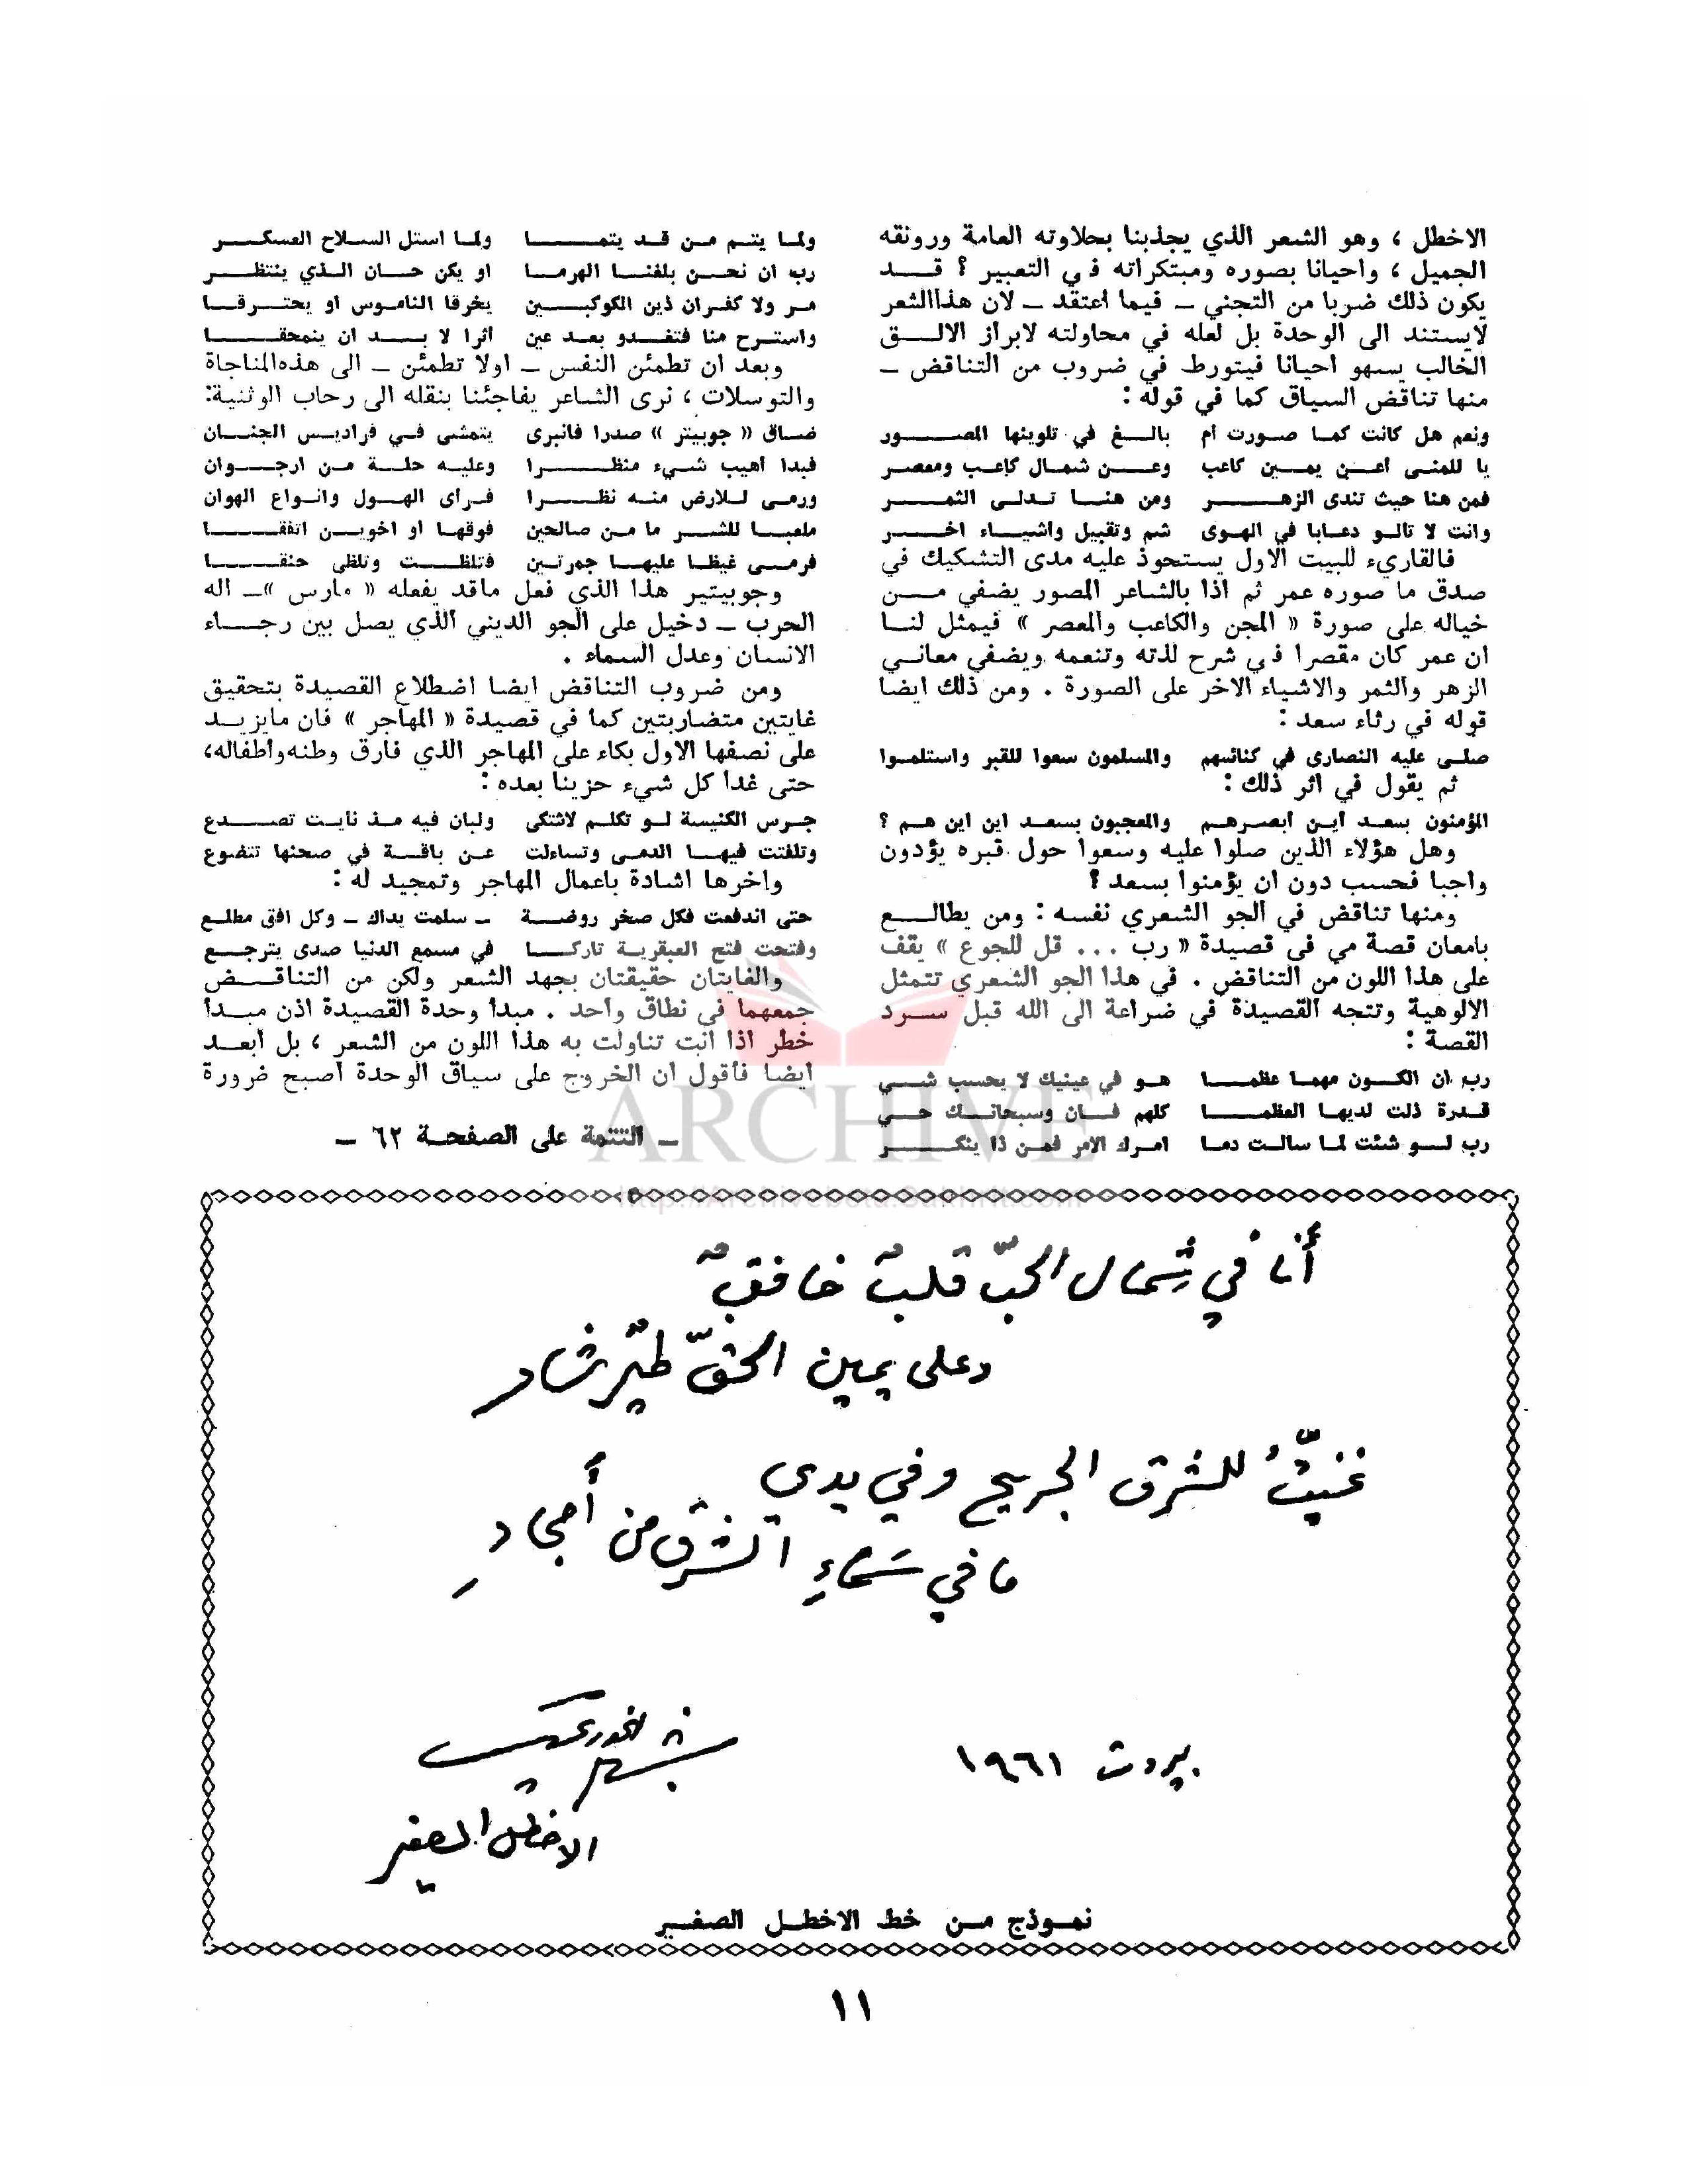 الاخطل ، وهو الشعر الذي يجذبنا بحلاوته العامة ورونقه
الجميل ، واحيانا بصوره ومبتكراته في التعبير ؟ قـــد
يكون ذلك ضربا من التجني – فيما اعتقد – لان هذاالشعر
لايستند الى الوحدة بل لعله في محاولته لابراز الالــق
الخالب يسهو احيانا فيتورط في ضروب من التناقض –
منها تناقض السياق كما في قوله :
ونعم هل كانت كمـا صـورت أم بالــغ في تلوينها المصـــور
يا للمنى أعـن يمـين كاعب وعــن شمـال كاعـب ومعصر
فمن هنا حيث تندى الزهــر ومن هنــا تـدلى الثمــر
وانت لا تالـو دعابا في الهـوى شم وتقبيل واشيـاء اخــر
فالقاريء للبيت الاول يستحوذ عليه مدى التشكيك في
صدق ما صوره عمر ثم اذا بالشاعر المصور يضفي مــن
خياله على صورة « المجن والكاعب والمعصر » فيمثل لنــا
ان عمر كان مقصرا في شرح لذته وتنعمه ويضفي معانـي
الزهر والثمر والاشياء الاخر على الصورة . ومن ذلك ايضا
قوله في رثاء سعد :
صلـى عليه النصارى في كنائسهم والمسلمون سعوا للقبر واستلمـوا
ثم يقول في اثر ذلك :
المؤمنون بسعد ايـن ابصـرهـم والمعجبون بسعـد اين اين هـم ؟
وهل هؤلاء الذين صلوا عليه وسعوا حول قبره يؤدون
واجبا فحسب دون ان يؤمنوا بسعد ؟
ومنها تناقض في الجو الشعري نفسه : ومن يطالــع
بامعان قصة مي في قصيدة « رب ... قل للجوع » يقف
على هذا اللون من التناقض . في هذا الجو الشعري تتمثل
الالوهية وتتجه القصيدة في ضراعة الى الله قبل ســرد
القصة :
رب ان الكـون مهمـا عظمــا هـو في عينيك لا يحسب شــي
قـدرة ذلت لديهـا العظمــا كلهم فــان وسبحانــك حــي
رب لـو شئت لمـا سالـت دمـا امـرك الامر فمـن ذا ينكــر
ولمـا يتـم مـن قـد يتمــا ولمـا استل السـلاح العسكــر
رب ان نحـن بلغنـا الهرمـا او يكن حـان الـذي ينتظــر
مـر ولا كفـران ذين الكوكبــين يخرقا الناموس او يحتـرقــا
واستـرح منا فتغـدو بعـد عين اثرا لا بــد ان ينمحقــا
وبعد ان تطمئن النفس – اولا تطمئن – الى هذهالمناجاة
والتوسلات ، نرى الشاعر يفاجئنا بنقله الى رحاب الوثنية:
ضـاق « جوبيتر » صدرا فانبرى يتمشى فـي فراديـس الجنــان
فبدا أهيب شـيء منظــرا وعليـه حلـة مـن ارجـوان
ورمـى لـلارض منـه نظــرا فـرأى الهـول وانـواع الهوان
ملعبـا للشـر ما مـن صالحين فوقهـا او اخويـن اتفقــا
فرمـى غيظـا عليهـا جمرتـين فتلظـت وتلظى حنقــا
وجوبيتير هذا الذي فعل ماقد يفعله « مارس »– اله
الحرب – دخيل على الجو الديني الذي يصل بين رجــاء
الانسان وعدل السماء .
ومن ضروب التناقض ايضا اضطلاع القصيدة بتحقيق
غايتين متضاربتين كما في قصيدة « المهاجر » فان مايزيــد
على نصفها الاول بكاء على المهاجر الذي فارق وطنه واطفاله،
حتى غدا كل شيء حزينا بعده :
جـرس الكنيسة لـو تكلـم لاشتكى ولبان فيه مـذ نايـت تصــدع
وتلفتت فيهـا الدمـى وتساءلت عـن باقـة في صحنها تتضوع
واخرها اشادة باعمال المهاجر وتمجيد له :
حتى اندفعت فكل صخر روضــة – سلمت يداك – وكل افق مطلـع
وفتحت فتح العبقريـة تاركــا في مسمع الدنيا صدى يترجــع
والغايتان حقيقتان بجهد الشعر ولكن من التناقــض
جمعهما في نطاق واحد . مبدأ وحدة القصيدة اذن مبـدأ
خطر اذا انت تناولت به هذا اللون من الشعر ، بل ابعــد
ايضا فأقول ان الخروج على سياق الوحدة أصبح ضرورة
– التتمة على الصفحـة ٦٢ –
ARCHIVE
http://Archivebeta.Sakhrit.com
أنا في شمال الحبّ قلبٌ خافقٌ
وعلى يمين الحقّ طيرٌ شادِ
غنيّتُ للشرق الجريح وفي يدي
ما في سَماءِ الشرقِ من أمجادِ
بيروت ١٩٦١
بشاره الخوري
الاخطل الصغير
نمـوذج مـن خط الاخطـل الصغـير
١١